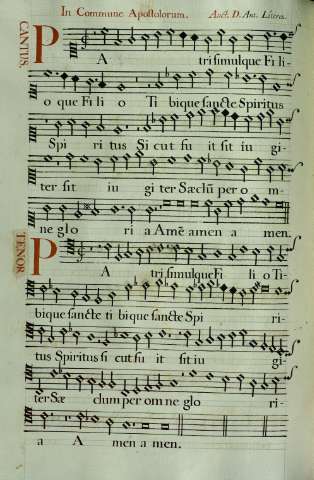 In Commune Apostolorum. Auct. D. Ant. Litera.
CANTUS.
P A tri simul que Fi li
o que Fi li o Ti bi que sancte Spiritus
Spi ri tus Si cut fu it sit iu gi
ter sit iu gi ter Sæclū per o m
ne glo ri a Amē amen a men.
TENOR
P A tri simul que Fi li o Ti
bi que sancte ti bi que sancte Spi ri
tus Spiritus si cut fu it sit iu gi
ter Sæ clum per om ne glo ri
a A men a men.